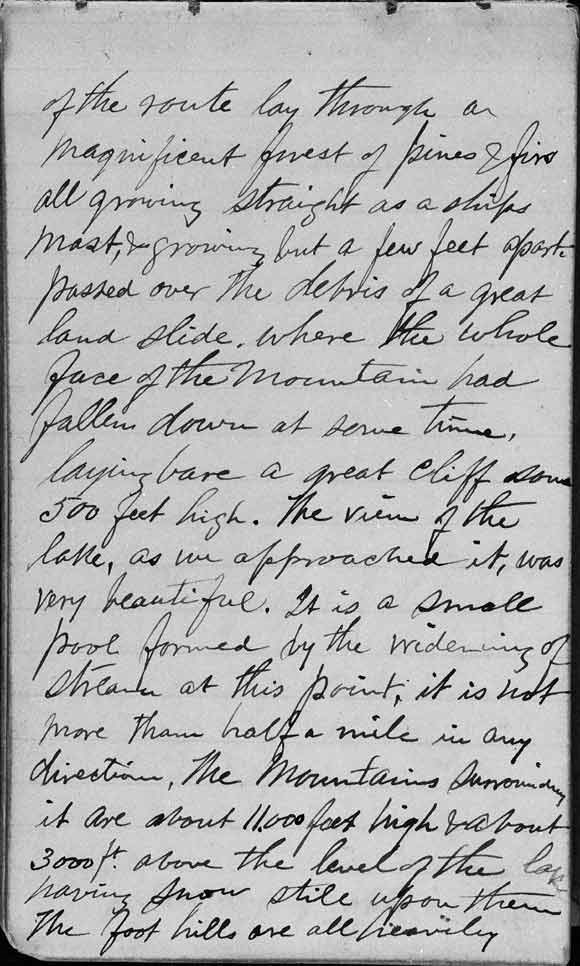 of the route lay through a
magnificent forest of pines & firs
all growing straight as a ships
mast, & growing but a few feet apart.
passed over the debris of a great
land slide. where the whole
face of the Mountain had
fallen down at some time,
laying bare a great cliff some
500 feet high. The view of the
lake, as we approached it, was
very beautiful. It is a small
pool formed by the widening of
stream at this point, it is not
more than half a mile in any
direction, the Mountains surrounding
it are about 11.000 feet high & about
3000 ft. above the level of the lake
having snow still upon them
The foot hills are all heavily